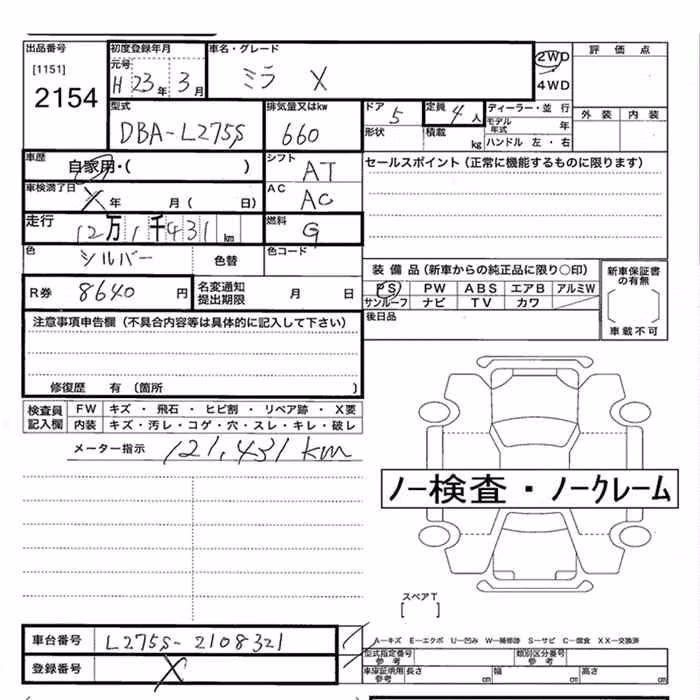 出品番号 初度登録年月 車名・グレード 評価点
[1151] 元号 2WD
2154 H 23年 3月 ミラ X 4WD
型式 排気量又はkw ドア 定員 ディーラー・並行 外装 内装
DBA-L275S 660 5 4人 モデル年式 年
形状 積載 kg ハンドル 左・右
車歴 自家用・( ) シフト AT セールスポイント(正常に機能するものに限ります)
車検満了日 X年 月( 日) AC AC
走行 12万1千431km 燃料 G
色 シルバー 色替 色コード
装備品(新車からの純正品に限り○印) 新車保証書の有無
R券 8640円 名変通知提出期限 月 日 PS PW ABS エアB アルミW
サンルーフ ナビ TV カワ [ ]
注意事項申告欄(不具合内容等は具体的に記入して下さい) 後日品 車載不可
修復歴 有 (箇所 )
検査員記入欄 FW キズ・飛石・ヒビ割・リペア跡・X要
内装 キズ・汚レ・コゲ・穴・スレ・キレ・破レ
メーター指示 121,431 km
ノー検査・ノークレーム
スペアT
[ ]
車台番号 L275S-2108321
登録番号 X
A－キズ E－エクボ U－凹み W－補修跡 S－サビ C－腐食 XX－交換済
型式指定番号 参考 類別区分番号 参考
車庫証明用 参考 長さ cm 幅 cm 高さ cm